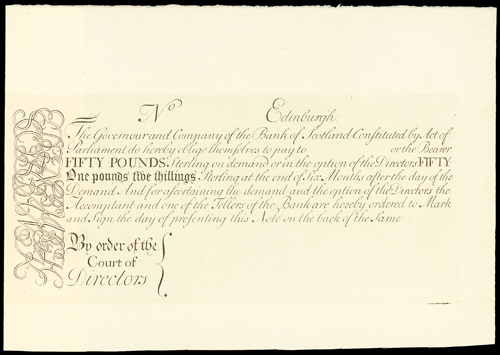 No Edinburgh.
The Governour and Company of the Bank of Scotland Constituted by Act of
Parliament do hereby oblige themselves to pay to or the Bearer
FIFTY POUNDS Sterling on demand or in the option of the Directors FIFTY
One pounds five shillings Sterling at the end of Six Months after the day of the
Demand And for ascertaining the demand and the option of the Directors the
Accomptant and one of the Tellers of the Bank are hereby ordered to Mark
and Sign the day of presenting this Note on the back of the Same
By order of the
Court of
Directors